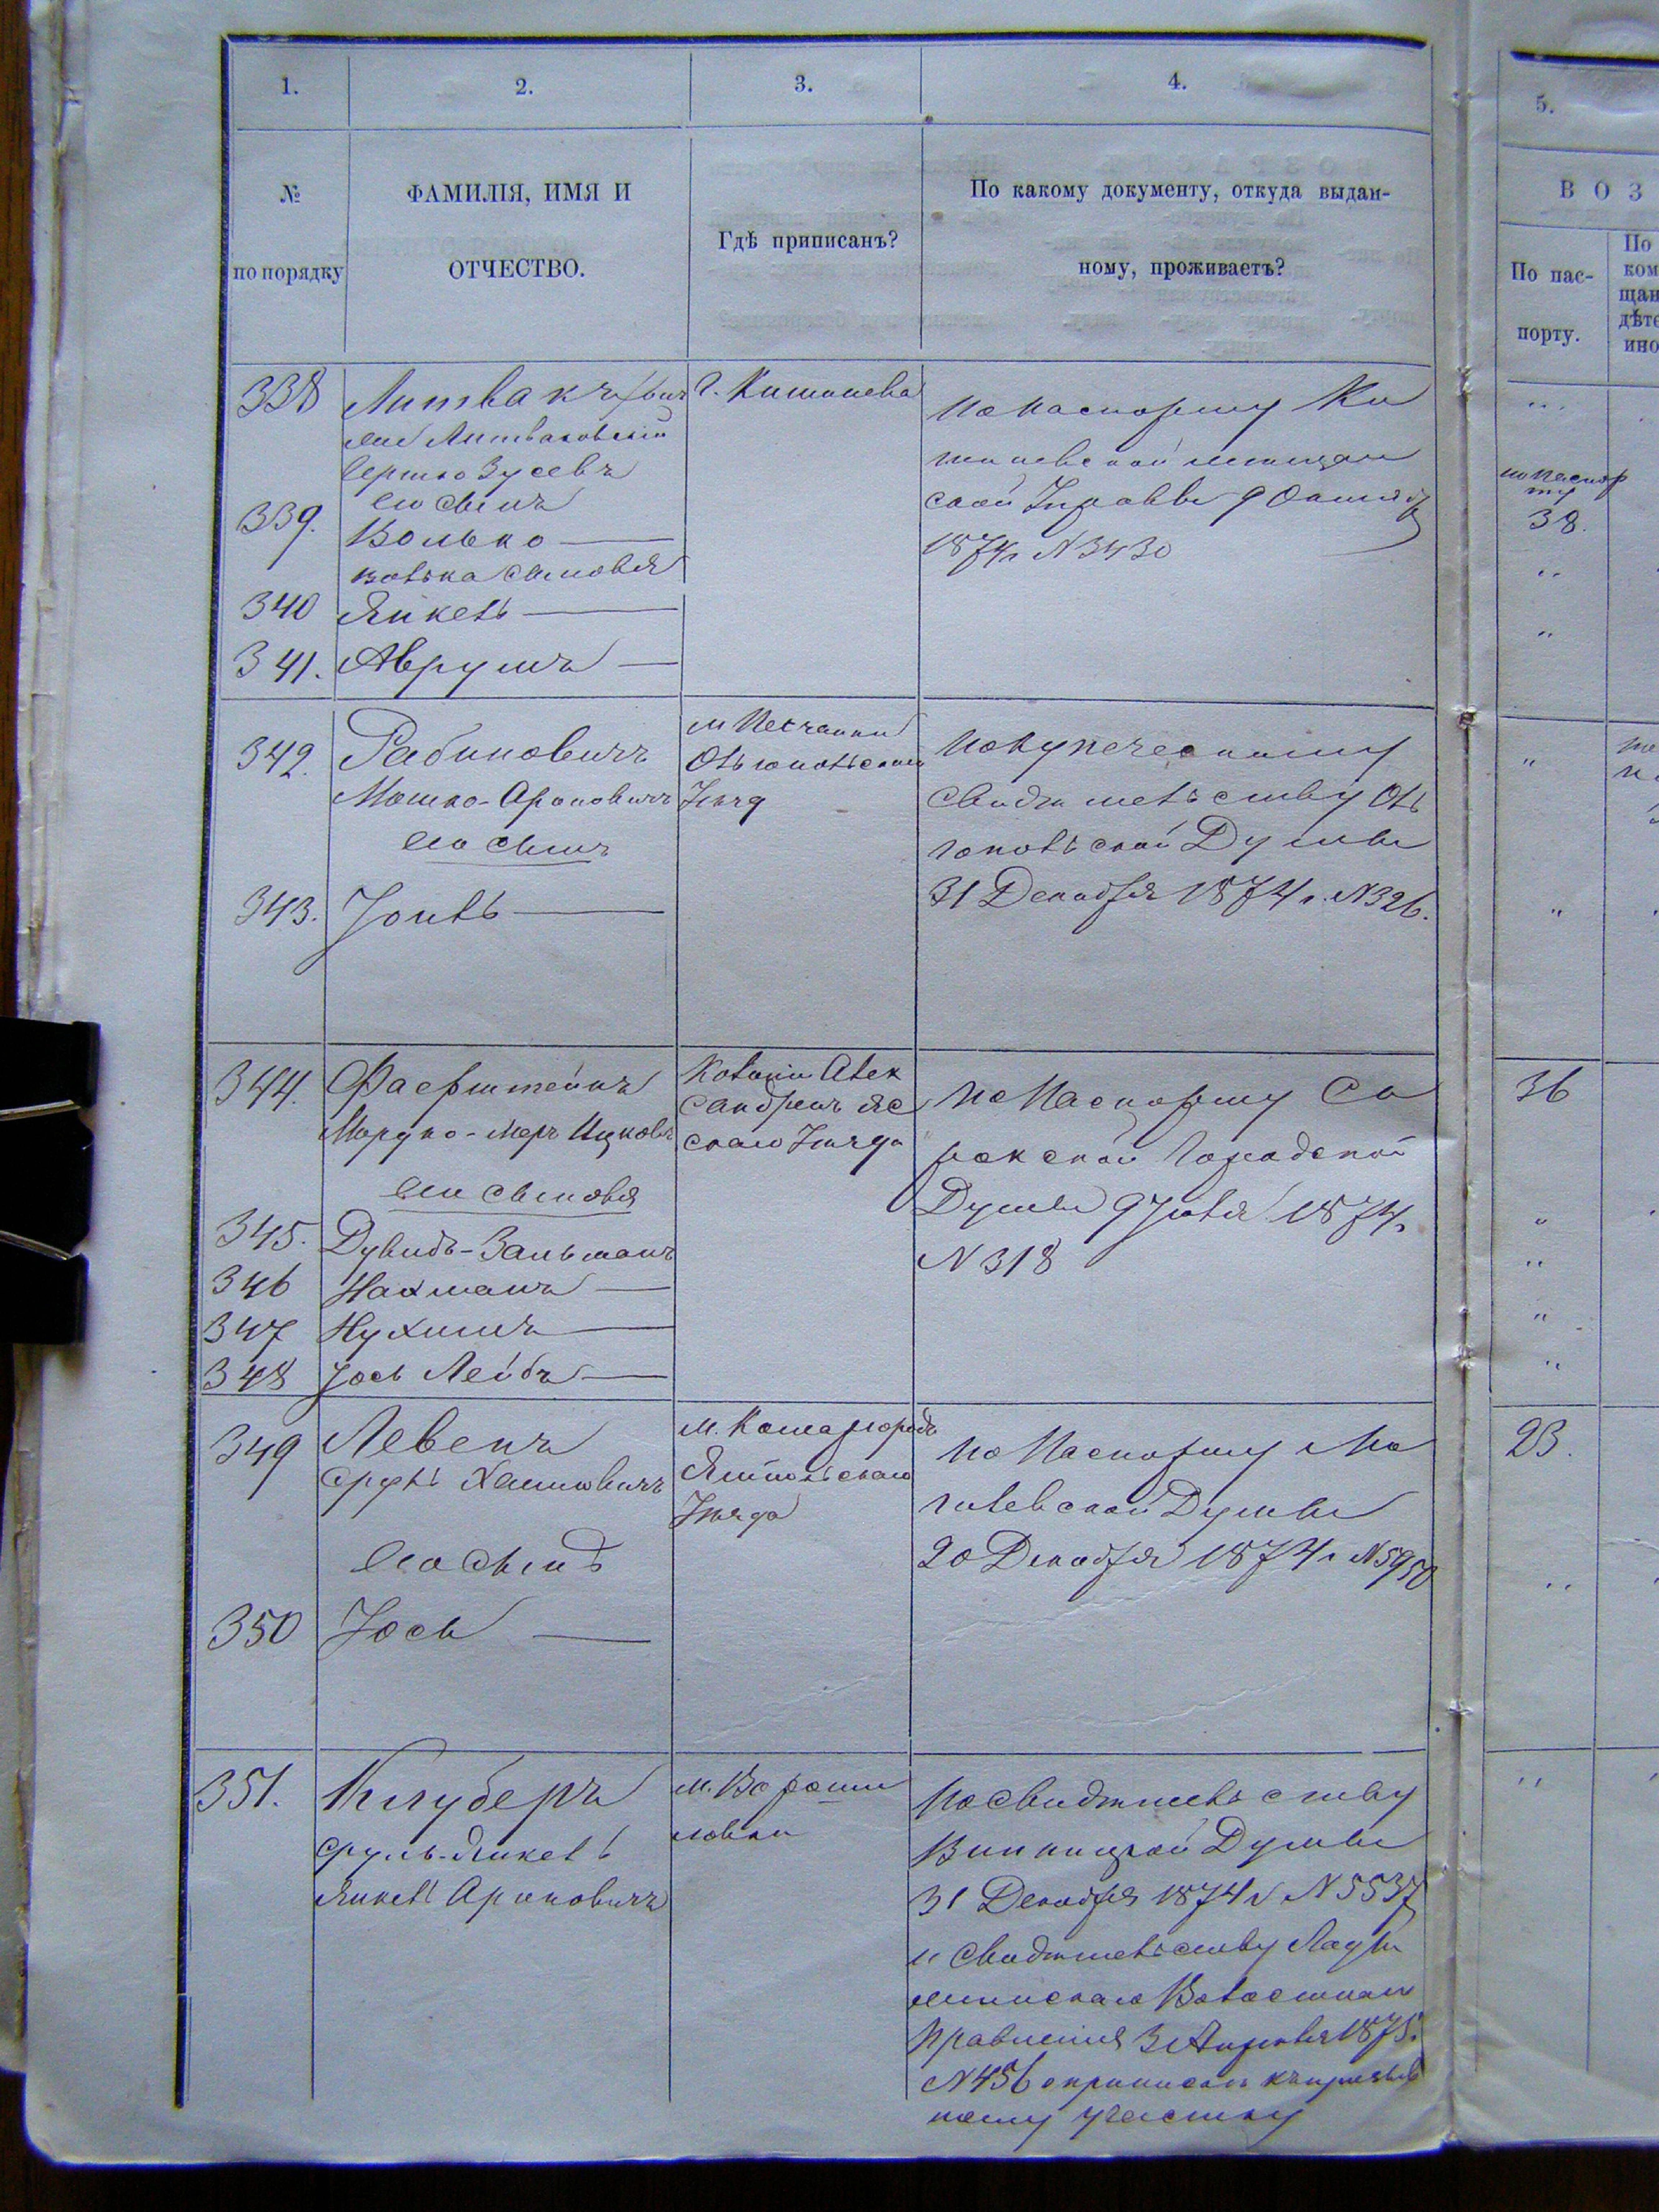 1.
2.
3.
4.
5.
№
по порядку
ФАМИЛІЯ, ИМЯ И
ОТЧЕСТВО.
Гдѣ приписанъ?
По какому документу, откуда выдан-
ному, проживаетъ?
В О З
По пас-
порту.
По
ком
щан
дѣте
ино
338
Литвакъ
или Литваковскій
Берко Зусевъ
его сынъ
339.
Волько
Волька сыновья
340
Янкель
341.
Аврумъ
г. Кишинева
по паспорту Ки
шиневской мещан
ской Управы 9 Октября
1874 г N 3430
по паспор
ту
38.
342.
Рабиновичъ
Мошко-Ароновичъ
его сынъ
343.
Іоиль
м Песчанки
Ольгопольскаго
Уѣзд
по купеческому
свидѣтельству Оль
гопольской Думы
31 Декабря 1874 г. N 326.
344.
Фаерштейнъ
Мордко-Меръ Ицковъ
его сыновья
345.
Дувидъ-Зальманъ
346
Нахманъ
347
Нухимъ
348
Іось Лейбъ
Колоніи Алек
сандренъ Яс
скаго Уѣзда
по Паспорту Со
рокской Городской
Думы 9 Іюля 1874 г
N 318
36
349
Левенъ
Сруль Хаимовичъ
его сынъ
350
Іось
м. Комаргородъ
Ямпольскаго
Уѣзда
по Паспорту Мо
гилевской Думы
20 Декабря 1874 г N 5950
23.
351.
Клуберъ
Сруль-Янкель
Янкель Ароновичъ
м. Вороши
ловки
по свидѣтельству
Винницкой Думы
31 Декабря 1874 г N 5537
и свидѣтельству
Волостнаго
Правленія 3 Апрѣля 1875 г.
N 456 о припискѣ къ призыв
ному участку